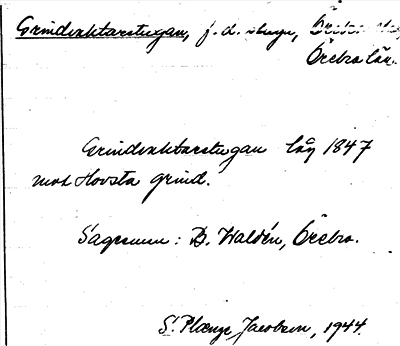 Grindvaktarstugan, f.d. stuga, Örebro
Örebro län.
Grindvaktarstugan låg 1847
mot Hovsta grind.
Sagesman: B. Waldén, Örebro.
S. Plænge Jacobson, 1944.